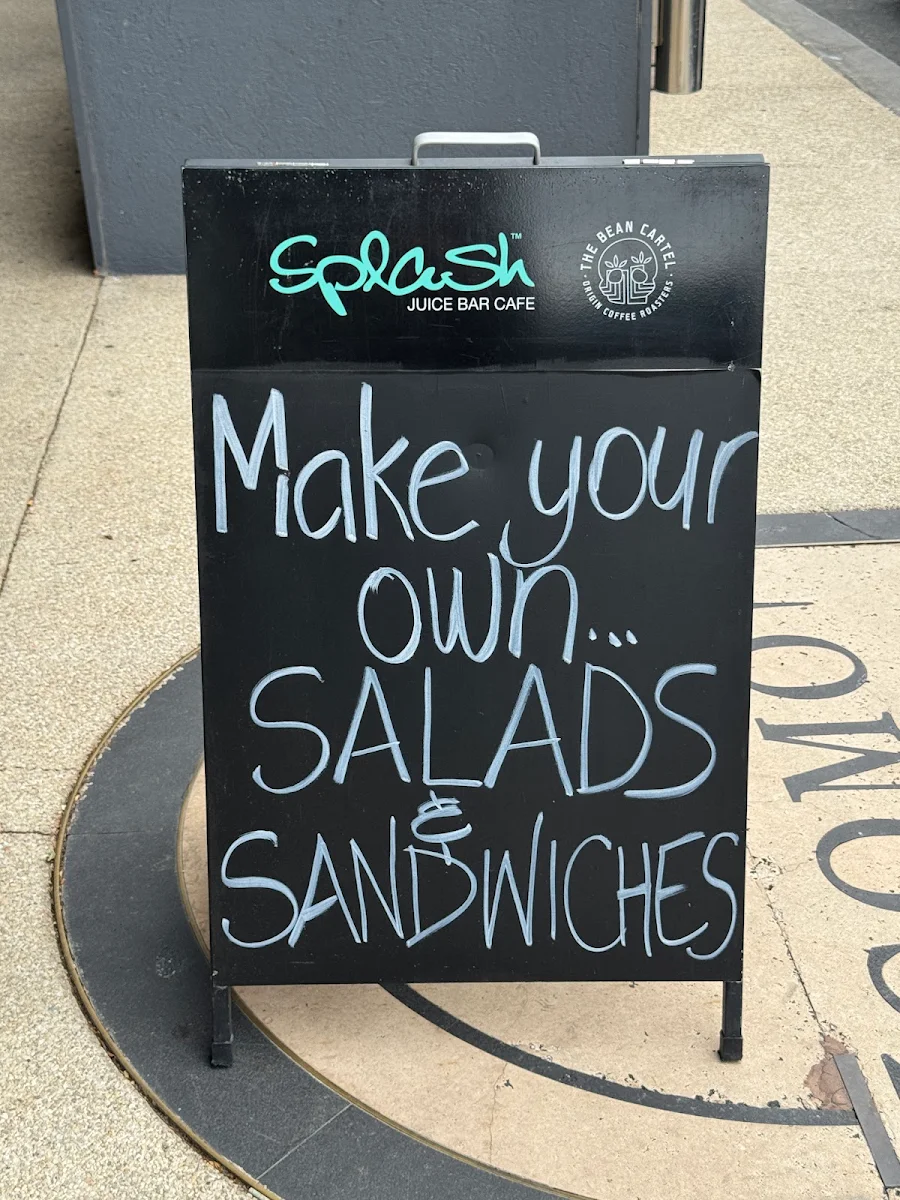 Splash™
JUICE BAR CAFE
THE BEAN CARTEL
ORIGIN COFFEE ROASTERS
Make your
own...
SALADS
&
SANDWICHES